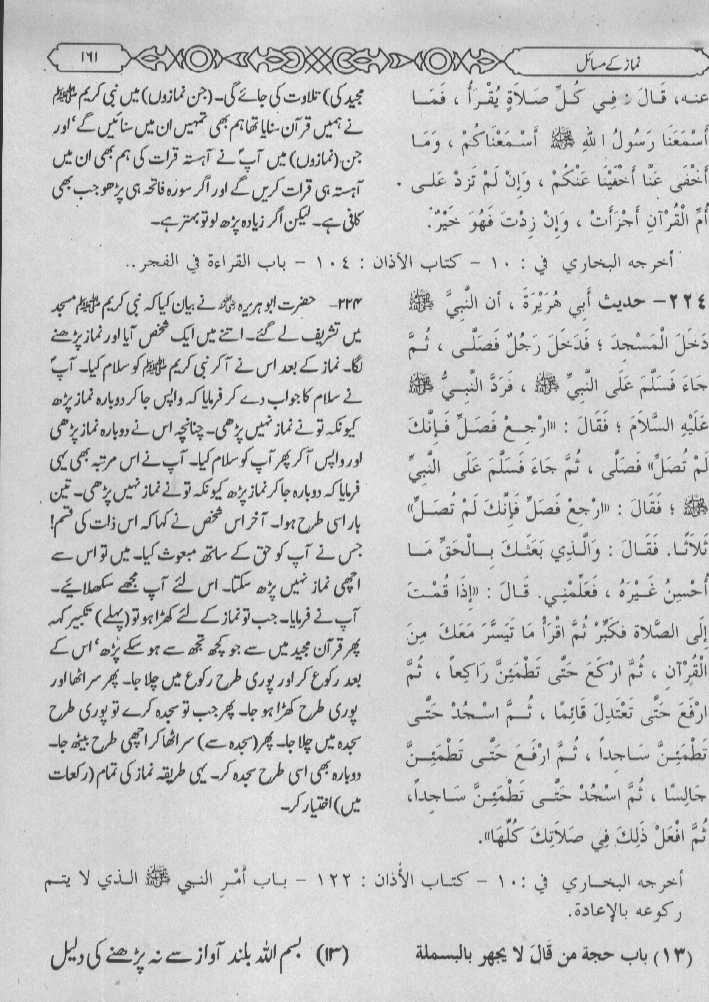 نماز کے مسائل
۱۶۱
عنه، قَالَ : فِي كُلِّ صَلَاةٍ يُقْرَأُ ، فَمَا
أَسْمَعَنَا رَسُولُ اللهِ ﷺ أَسْمَعْنَاكُمْ ، وَمَا
أَخْفَى عَنَّا أَخْفَيْنَا عَنْكُمْ ، وَإِنْ لَمْ تَزِدْ عَلَى
أُمِّ الْقُرْآنِ أَجْزَأَتْ ، وَإِنْ زِدْتَ فَهُوَ خَيْرٌ.
مجید کی) تلاوت کی جائے گی۔ (جن نمازوں) میں نبی کریم ﷺ
نے ہمیں قرآن سنایا تھا ہم بھی تمہیں ان میں سنائیں گے‘ اور
جن (نمازوں) میں آپؐ نے آہستہ قرات کی ہم بھی ان میں
آہستہ ہی قرات کریں گے اور اگر سورہ فاتحہ ہی پڑھو جب بھی
کافی ہے۔ لیکن اگر زیادہ پڑھ لو تو بہتر ہے۔
أخرجه البخاري في : ١٠ - كتاب الأذان : ١٠٤ - باب القراءة في الفجر..
٢٢٤- حديث أَبِي هُرَيْرَةَ ، أن النَّبِيَّ ﷺ
دَخَلَ الْمَسْجِدَ ؛ فَدَخَلَ رَجُلٌ فَصَلَّى ، ثُمَّ
جَاءَ فَسَلَّمَ عَلَى النَّبِيِّ ﷺ ، فَرَدَّ النَّبِيُّ ﷺ
عَلَيْهِ السَّلَامَ ؛ فَقَالَ : «ارْجِعْ فَصَلِّ فَإِنَّكَ
لَمْ تُصَلِّ» فَصَلَّى ، ثُمَّ جَاءَ فَسَلَّمَ عَلَى النَّبِيِّ
ﷺ ؛ فَقَالَ : «ارْجِعْ فَصَلِّ فَإِنَّكَ لَمْ تُصَلِّ»
ثَلَاثًا. فَقَالَ : وَالَّذِي بَعَثَكَ بِالْحَقِّ مَا
أُحْسِنُ غَيْرَهُ ، فَعَلِّمْنِي. قَالَ : «إِذَا قُمْتَ
إِلَى الصَّلَاة فَكَبِّرْ ثُمَّ اقْرَأْ مَا تَيَسَّرَ مَعَكَ مِنَ
الْقُرْآنِ ، ثُمَّ ارْكَعْ حَتَّى تَطْمَئِنَّ رَاكِعاً ، ثُمَّ
ارْفَعْ حَتَّى تَعْتَدِلَ قَائِمًا ، ثُمَّ اسْجُدْ حَتَّى
تَطْمَئِنَّ سَاجِداً ، ثُمَّ ارْفَعْ حَتَّى تَطْمَئِنَّ
جَالِسًا ، ثُمَّ اسْجُدْ حَتَّى تَطْمَئِنَّ سَاجِداً،
ثُمَّ افْعَلْ ذَلِكَ فِي صَلَاتِكَ كُلِّهَا».
۲۲۴- حضرت ابو ہریرہ ؓ نے بیان کیا کہ نبی کریم ﷺ مسجد
میں تشریف لے گئے۔ اتنے میں ایک شخص آیا اور نماز پڑھنے
لگا۔ نماز کے بعد اس نے آکر نبی کریم ﷺ کو سلام کیا۔ آپؐ
نے سلام کا جواب دے کر فرمایا کہ واپس جا کر دوبارہ نماز پڑھ
کیونکہ تو نے نماز نہیں پڑھی۔ چنانچہ اس نے دوبارہ نماز پڑھی
اور واپس آ کر پھر آپ کو سلام کیا۔ آپ نے اس مرتبہ بھی یہی
فرمایا کہ دوبارہ جا کر نماز پڑھ کیونکہ تو نے نماز نہیں پڑھی۔ تین
بار اسی طرح ہوا۔ آخر اس شخص نے کہا کہ اس ذات کی قسم!
جس نے آپ کو حق کے ساتھ مبعوث کیا۔ میں تو اس سے
اچھی نماز نہیں پڑھ سکتا۔ اس لئے آپ مجھے سکھلائیے۔
آپ نے فرمایا۔ جب تو نماز کے لئے کھڑا ہو تو (پہلے) تکبیر کہہ
پھر قرآن مجید میں سے جو کچھ تجھ سے ہو سکے پڑھ‘ اس کے
بعد رکوع کر اور پوری طرح رکوع میں چلا جا۔ پھر سر اٹھا اور
پوری طرح کھڑا ہو جا۔ پھر جب تو سجدہ کرے تو پوری طرح
سجدہ میں چلا جا۔ پھر (سجدہ سے) سر اٹھا کر اچھی طرح بیٹھ جا۔
دوبارہ بھی اسی طرح سجدہ کر۔ یہی طریقہ نماز کی تمام (رکعات
میں) اختیار کر۔
أخرجه البخاري في :١٠ - كتاب الأذان : ١٢٢ - باب أمْرِ النبي ﷺ الذي لا يتم
ركوعه بالإعادة.
(١٣) باب حجة من قَالَ لا يجهر بالبسملة
(۱۳) بسم اللہ بلند آواز سے نہ پڑھنے کی دلیل